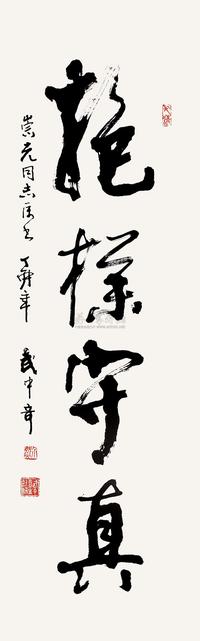 抱樸守真
崇元同志 丁卯年 武中奇